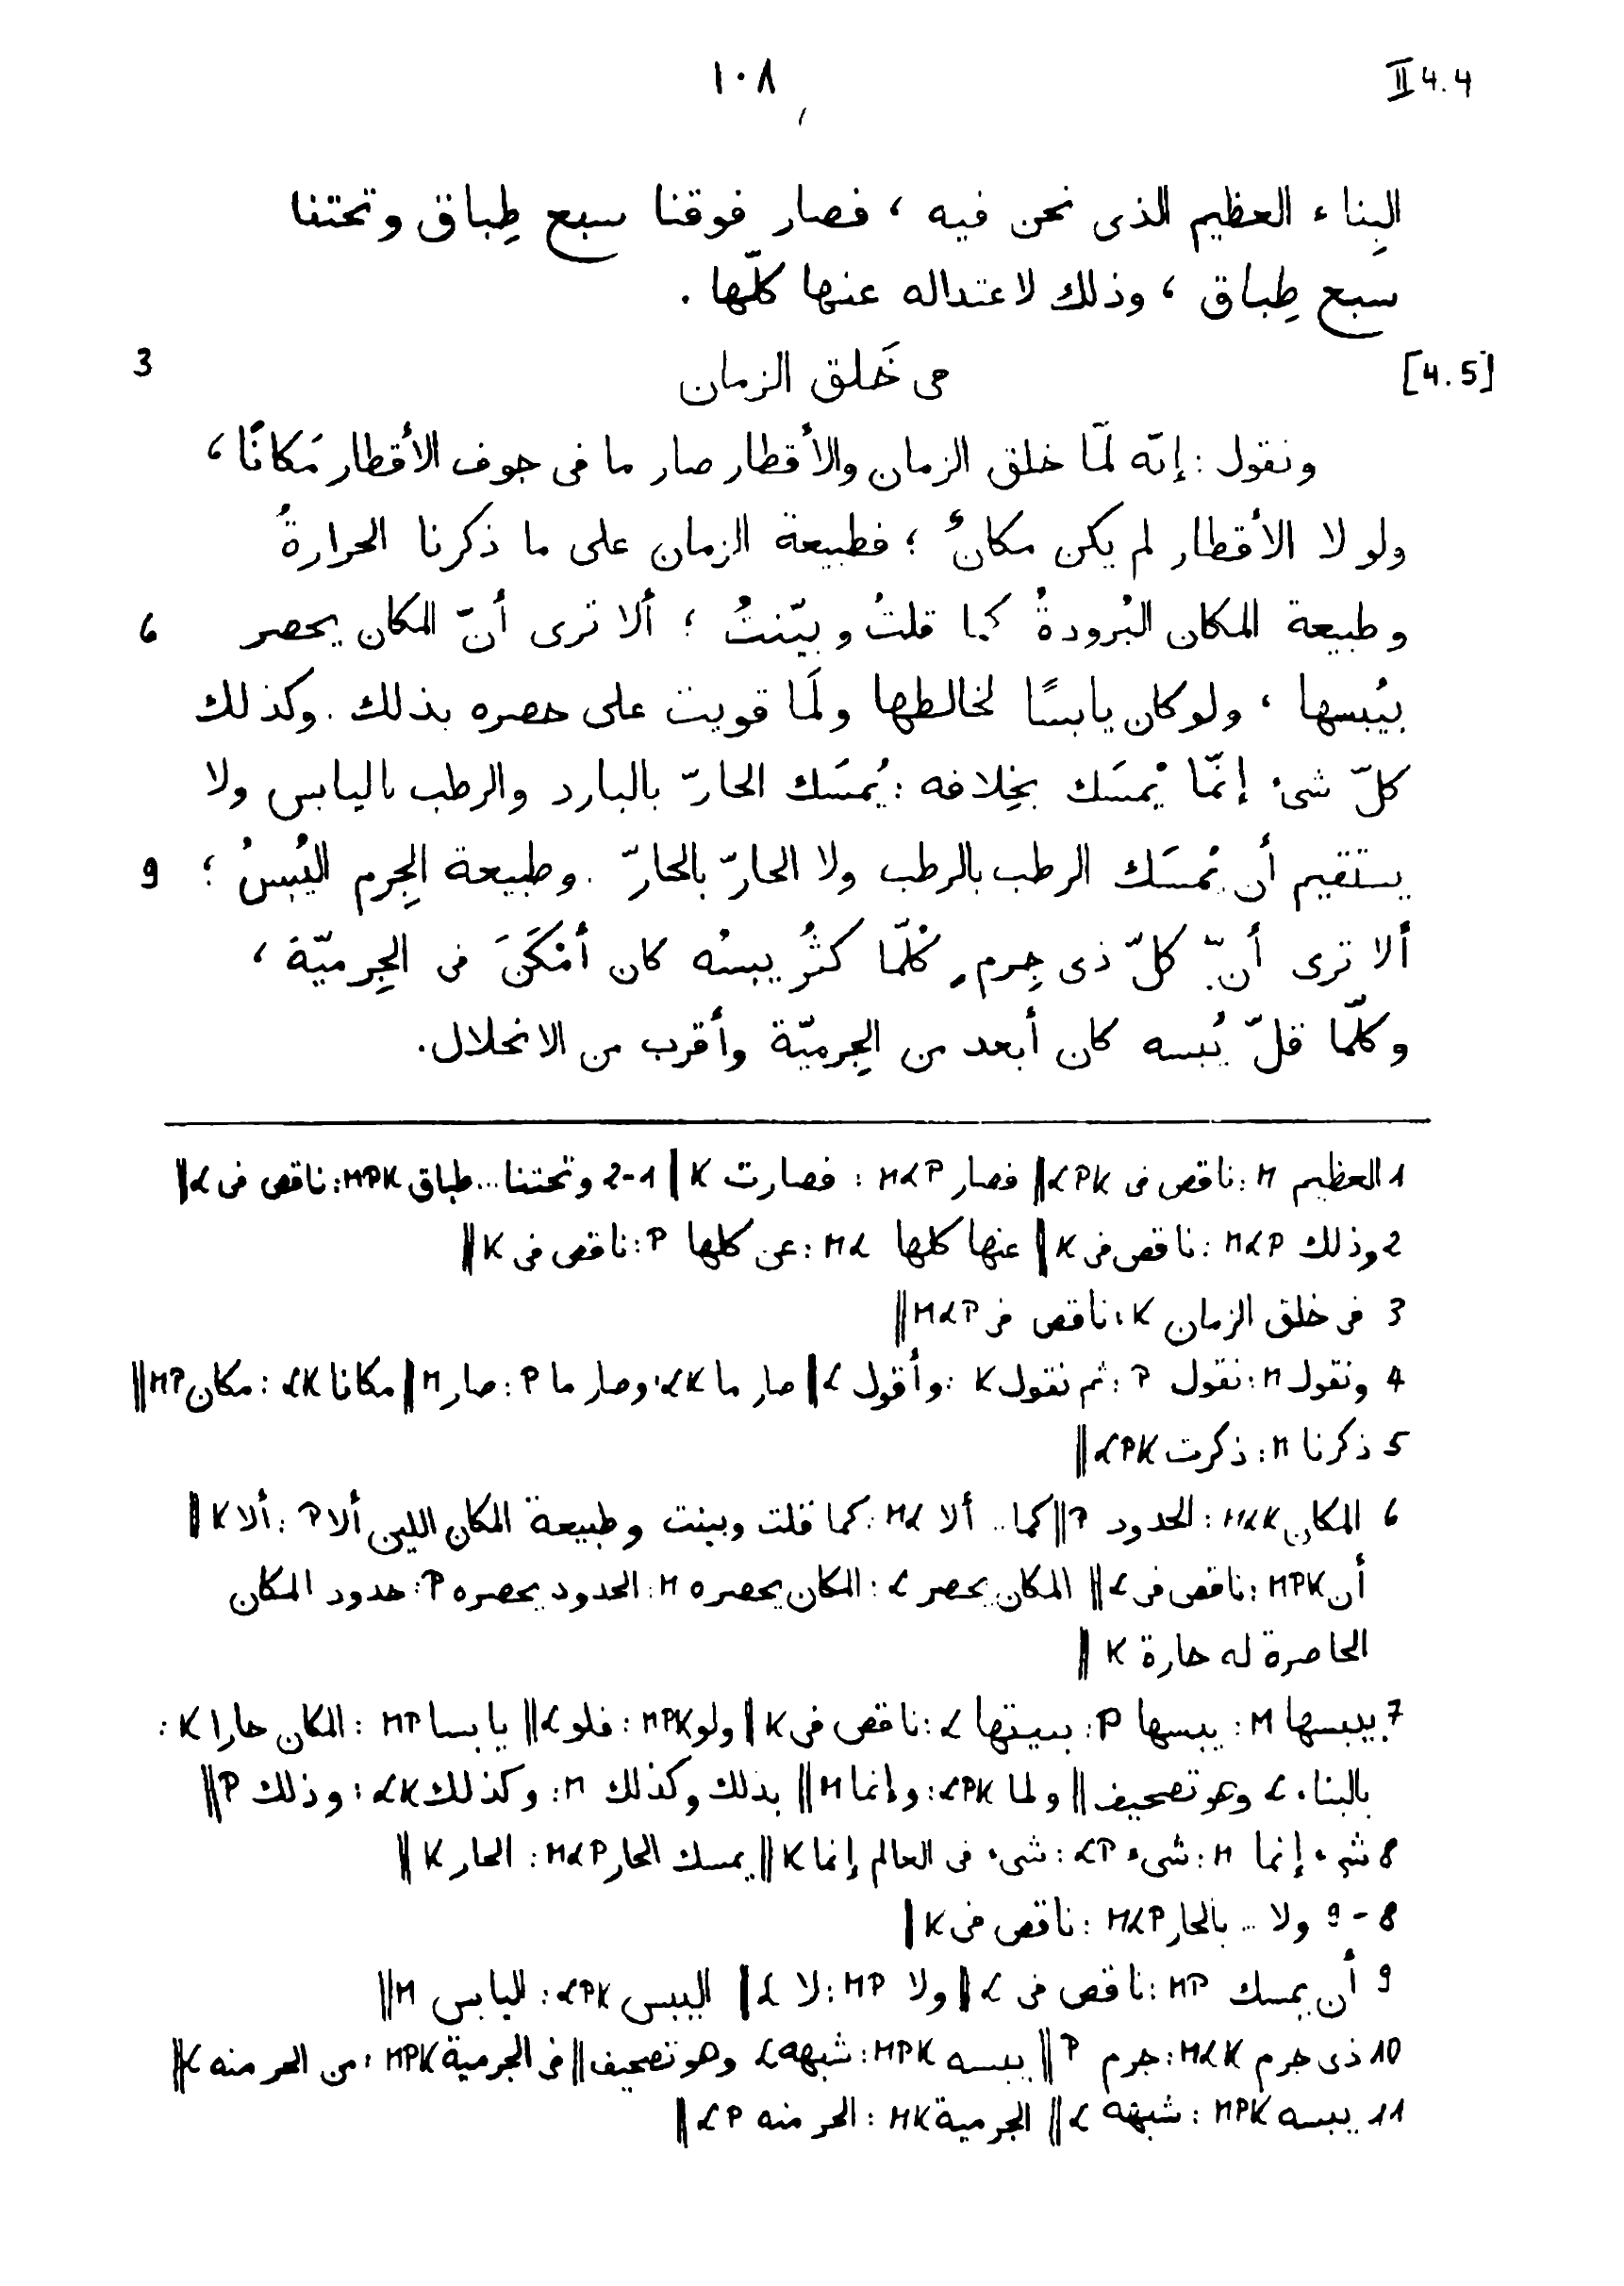 ١٠٨
II 4.4
البِناء العظيم الذى نحن فيه ، فصار فوقنا سبع طِباق وتحتنا
سبع طِباق ، وذلك لاعتداله عنها كلّها .
[4.5] فى خَلق الزمان 3
ونقول : إنّه لَمّا خلق الزمان والأقطار صار ما فى جوف الأقطار مَكانًا ،
ولو لا الأقطار لم يكن مكانٌ ؛ فطبيعة الزمان على ما ذكرنا الحرارةُ
وطبيعة المكان البُرودةُ كما قلتُ وبيّنتُ ؛ ألا ترى أنّ المكان يحصر 6
بيُبسها ، ولو كان يابسًا لخالطها ولَمَا قويت على حصره بذلك . وكذلك
كلّ شىء إنّما يُمسَك بخِلافه : يُمسَك الحارّ بالبارد والرطب باليابس ولا
يستقيم أن يُمسَك الرطب بالرطب ولا الحارّ بالحارّ . وطبيعة الجِرم اليُبسُ ؛ 9
ألا ترى أنّ كلّ ذى جِرمٍ كُلّما كثُر يبسُه كان أمْكَنَ فى الجِرميّة ،
وكلّما قلّ يُبسه كان أبعد من الجِرميّة وأقرب من الانحلال.
1 العظيم M : ناقص فى LPK || فصار MLP : فصارت K || 1-2 وتحتنا ... طباق MPK : ناقص فى L ||
2 وذلك MLP : ناقص فى K || عنها كلها ML : عن كلها P : ناقص فى K ||
3 فى خلق الزمان K : ناقص فى MLP ||
4 ونقول M : نقول P : ثم نقول K : وأقول L || صار ما LK : وصار ما P : صار M || مكانا LK : مكان MP ||
5 ذكرنا M : ذكرت LPK ||
6 المكان MLK : الحدود P || كما .. ألا ML : كما قلت وبينت وطبيعة المكان اللين ألا P : ألا K ||
أن MPK : ناقص فى L || المكان يحصر L : المكان يحصره M : الحدود يحصره P : حدود المكان
الحاصرة له حارة K ||
7 بيبسها M : يبسها P : ببيتها L : ناقص فى K || ولو MPK : فلو L || يابسا MP : المكان حارا K :
بالبناء L وهو تصحيف || ولما LPK : وإنما M || بذلك وكذلك M : وكذلك LK : وذلك P ||
8 شىء إنما M : شىء LP : شىء فى العالم إنما K || يمسك الحار MLP : الحار K ||
8 - 9 ولا ... بالحار MLP : ناقص فى K ||
9 أن يمسك MP : ناقص فى L || ولا MP : لا L || اليبس LPK : ليابس M ||
10 ذى جرم MLK : جرم P || يبسه MPK : شبهه L وهو تصحيف || فى الجرمية MPK : من الحر منه L ||
11 يبسه MPK : شبهه L || الجرمية MK : الحر منه LP ||